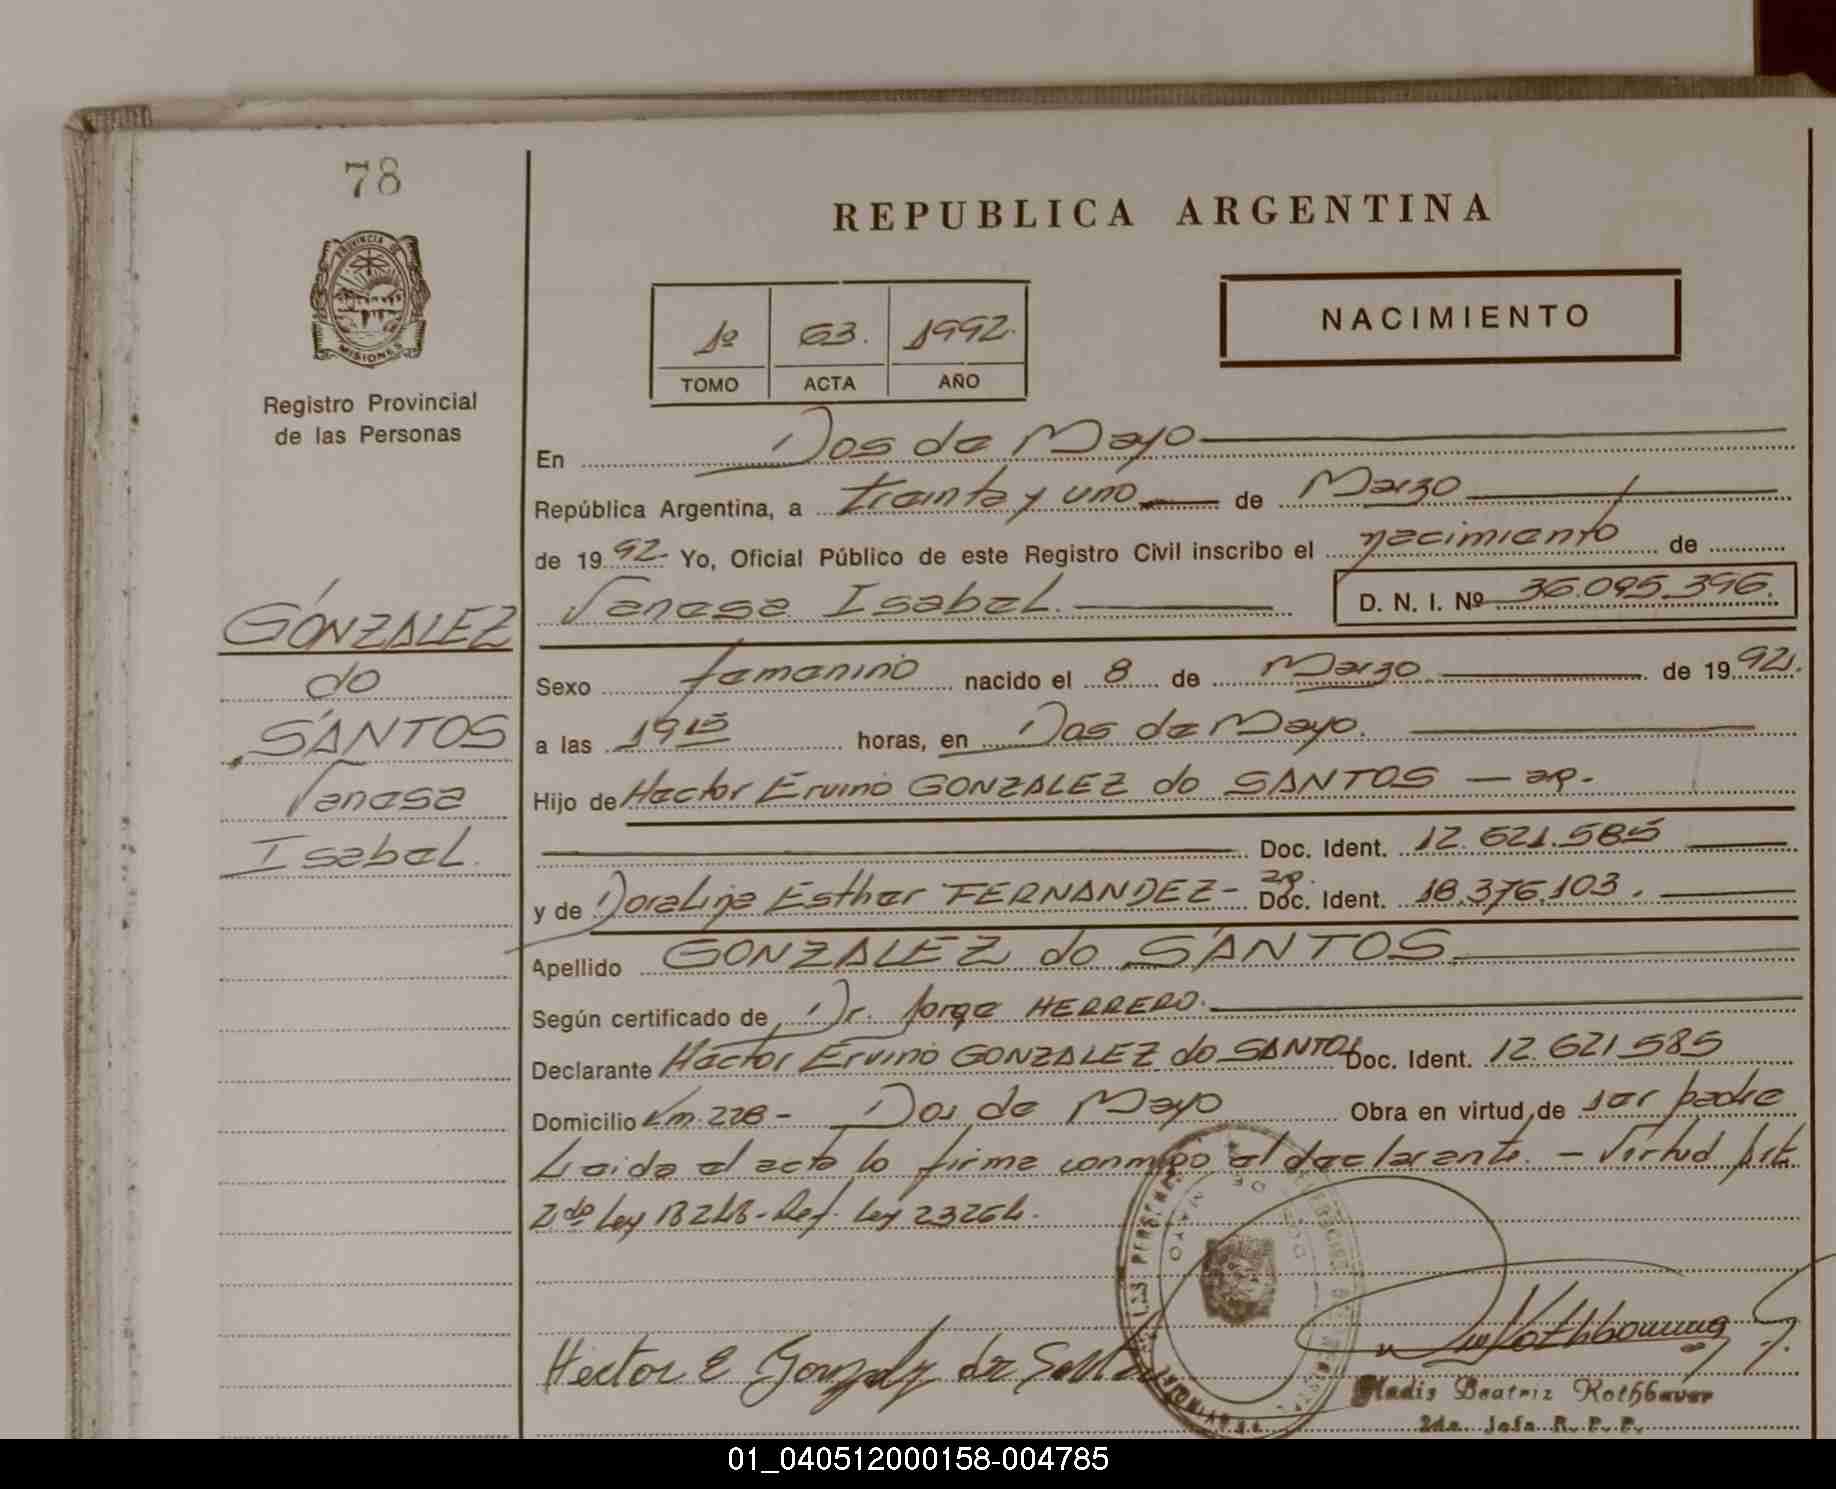 78
PROVINCIA DE
MISIONES
Registro Provincial
de las Personas
GONZALEZ
do
SANTOS
Vanesa
Isabel.
REPUBLICA ARGENTINA
1º 63. 1992.
TOMO ACTA AÑO
NACIMIENTO
En Dos de Mayo
República Argentina, a treinta y uno de Marzo
de 1992 Yo, Oficial Público de este Registro Civil inscribo el nacimiento de
Vanesa Isabel. D. N. I. Nº 36.095.396.
Sexo femenino nacido el 8 de Marzo de 1992.
a las 19 15 horas, en Dos de Mayo.
Hijo de Hector Ervino GONZALEZ do SANTOS — ap.
Doc. Ident. 12.621.585
y de Doralina Esther FERNANDEZ - ap. Doc. Ident. 18.376.103.
Apellido GONZALEZ do SANTOS
Según certificado de Dr. Jorge HERRERO.
Declarante Hector Ervino GONZALEZ do SANTOS Doc. Ident. 12.621.585
Domicilio Km. 228 - Dos de Mayo Obra en virtud de ser padre
Leida el acta la firma conmigo el declarante. - Virtud Art.
2do Ley 18248 - Ref. Ley 23264.
DOS DE MAYO
Hector E Gonzalez do Santos
Rothbauer
Gladis Beatriz Rothbauer
2da. Jefa R. P. P.
01_040512000158-004785